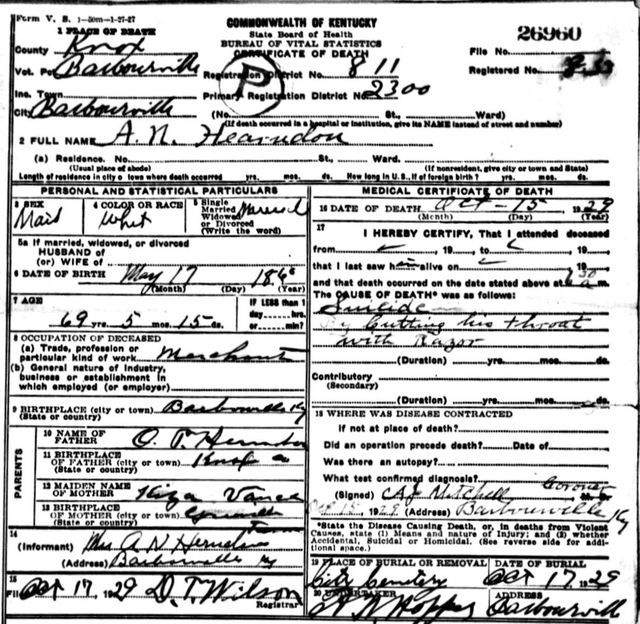 Form V. S. 1-50m-1-27-27
COMMONWEALTH OF KENTUCKY
State Board of Health
BUREAU OF VITAL STATISTICS
CERTIFICATE OF DEATH
26960
1 PLACE OF DEATH
County Knox
File No.
Vot. Pct Barbourville
Registration District No. 811
Registered No.
P
Inc. Town
Primary Registration District No. 2300
City Barbourville
(No. St., Ward)
(If death occurred in a hospital or institution, give its NAME instead of street and number)
2 FULL NAME A. N. Hearndon
(a) Residence. No. St., Ward.
(Usual place of abode) (If nonresident, give city or town and State)
Length of residence in city or town where death occurred yrs. mos. ds. How long in U.S., if of foreign birth? yrs. mos. ds.
PERSONAL AND STATISTICAL PARTICULARS
3 SEX
4 COLOR OR RACE Whit
5 Single
Married
Widowed
or Divorced
(Write the word)
5a If married, widowed, or divorced
HUSBAND of
(or) WIFE of
6 DATE OF BIRTH May 17
(Month) (Day) (Year)
7 AGE
69 yrs. 5 mos. 15 ds.
IF LESS than 1
day hrs.
or min.
8 OCCUPATION OF DECEASED
(a) Trade, profession or
particular kind of work Merchant
(b) General nature of industry,
business or establishment in
which employed (or employer)
9 BIRTHPLACE (city or town) Barbourville Ky
(State or country)
PARENTS
10 NAME OF
FATHER
11 BIRTHPLACE
OF FATHER (city or town) Knox
(State or country)
12 MAIDEN NAME
OF MOTHER Vance
13 BIRTHPLACE
OF MOTHER (city or town)
(State or country)
14
(Informant) Mrs A N
(Address) Barbourville Ky
15
Filed Oct 17, 1929 D. T. Wilson
Registrar
MEDICAL CERTIFICATE OF DEATH
16 DATE OF DEATH Oct-15 1929
(Month) (Day) (Year)
17
I HEREBY CERTIFY, That I attended deceased
from 19 , to 19
that I last saw h alive on 19
and that death occurred on the date stated above at m.
The CAUSE OF DEATH* was as follows:
Suicide
By Cutting his throat
with Razor
(Duration) yrs. mos. ds.
Contributory
(Secondary)
(Duration) yrs. mos. ds.
18 WHERE WAS DISEASE CONTRACTED
If not at place of death?
Did an operation precede death? Date of
Was there an autopsy?
What test confirmed diagnosis?
(Signed) Mitchell Coroner
1929 (Address) Barbourville Ky
*State the Disease Causing Death, or, in deaths from Violent
Causes, state (1) Means and nature of Injury; and (2) whether
Accidental, Suicidal or Homicidal. (See reverse side for addi-
tional space.)
19 PLACE OF BURIAL OR REMOVAL DATE OF BURIAL
City Cemetery Oct 17 1929
20 UNDERTAKER ADDRESS
Barbourville